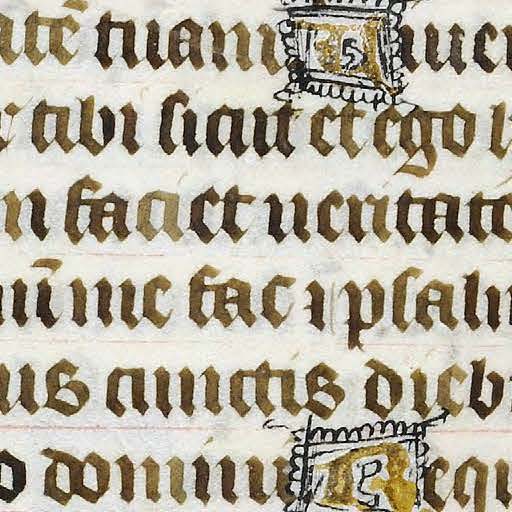 atē tuam S auer
r tibi sicut et ego
n faciet ueritate
nū me fac i psalm
us cunctis dieb
o dominu R equ